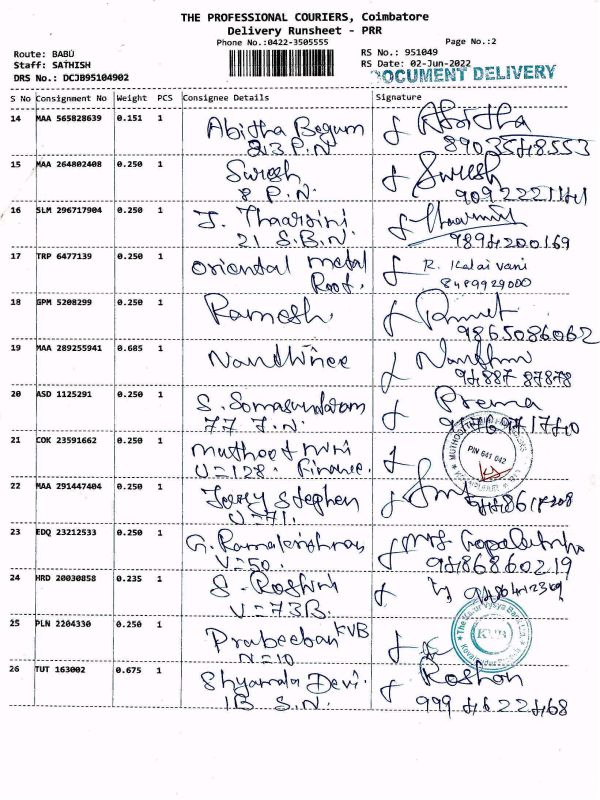 THE PROFESSIONAL COURIERS, Coimbatore
Delivery Runsheet - PRR
Phone No.:0422-3505555 Page No.:2
Route: BABU RS No.: 951049
Staff: SATHISH RS Date: 02-Jun-2022
DRS No.: DCJB95104902 DOCUMENT DELIVERY
S No Consignment No Weight PCS Consignee Details Signature
14 MAA 565828639 0.151 1 Abitha Begum Abitha
213 P.N 8903548553
15 MAA 264802408 0.250 1 Suresh Suresh
8 P.N.
16 SLM 296717904 0.250 1 J. Thaarsini
21 S.B.N. 9894200169
17 TRP 6477139 0.250 1 Oriental metal R. Kalai vani
Roof. 8489929000
18 GPM 5208299 0.250 1 Ramesh.
9865086062
19 MAA 289255941 0.685 1 Nandhinee
94887 87878
20 ASD 1125291 0.250 1 S. Somasundaram Prema
77 J.N.
21 COK 23591662 0.250 1 Muthoot mini
U=128. Finance. PIN 641 042
22 MAA 291447404 0.250 1 Jerry Stephen
U=71.
23 EDQ 23212533 0.250 1 G. Ramakrishnan
V=50. 9486860219
24 HRD 20030858 0.235 1 S. Roshni
V=73B.
25 PLN 2204330 0.250 1 Prabeeban KVB The Karur Vysya Bank Ltd. KVB
N=10
26 TUT 163002 0.675 1 Shyamala Devi. Roshan
1B S.N. 9994622468